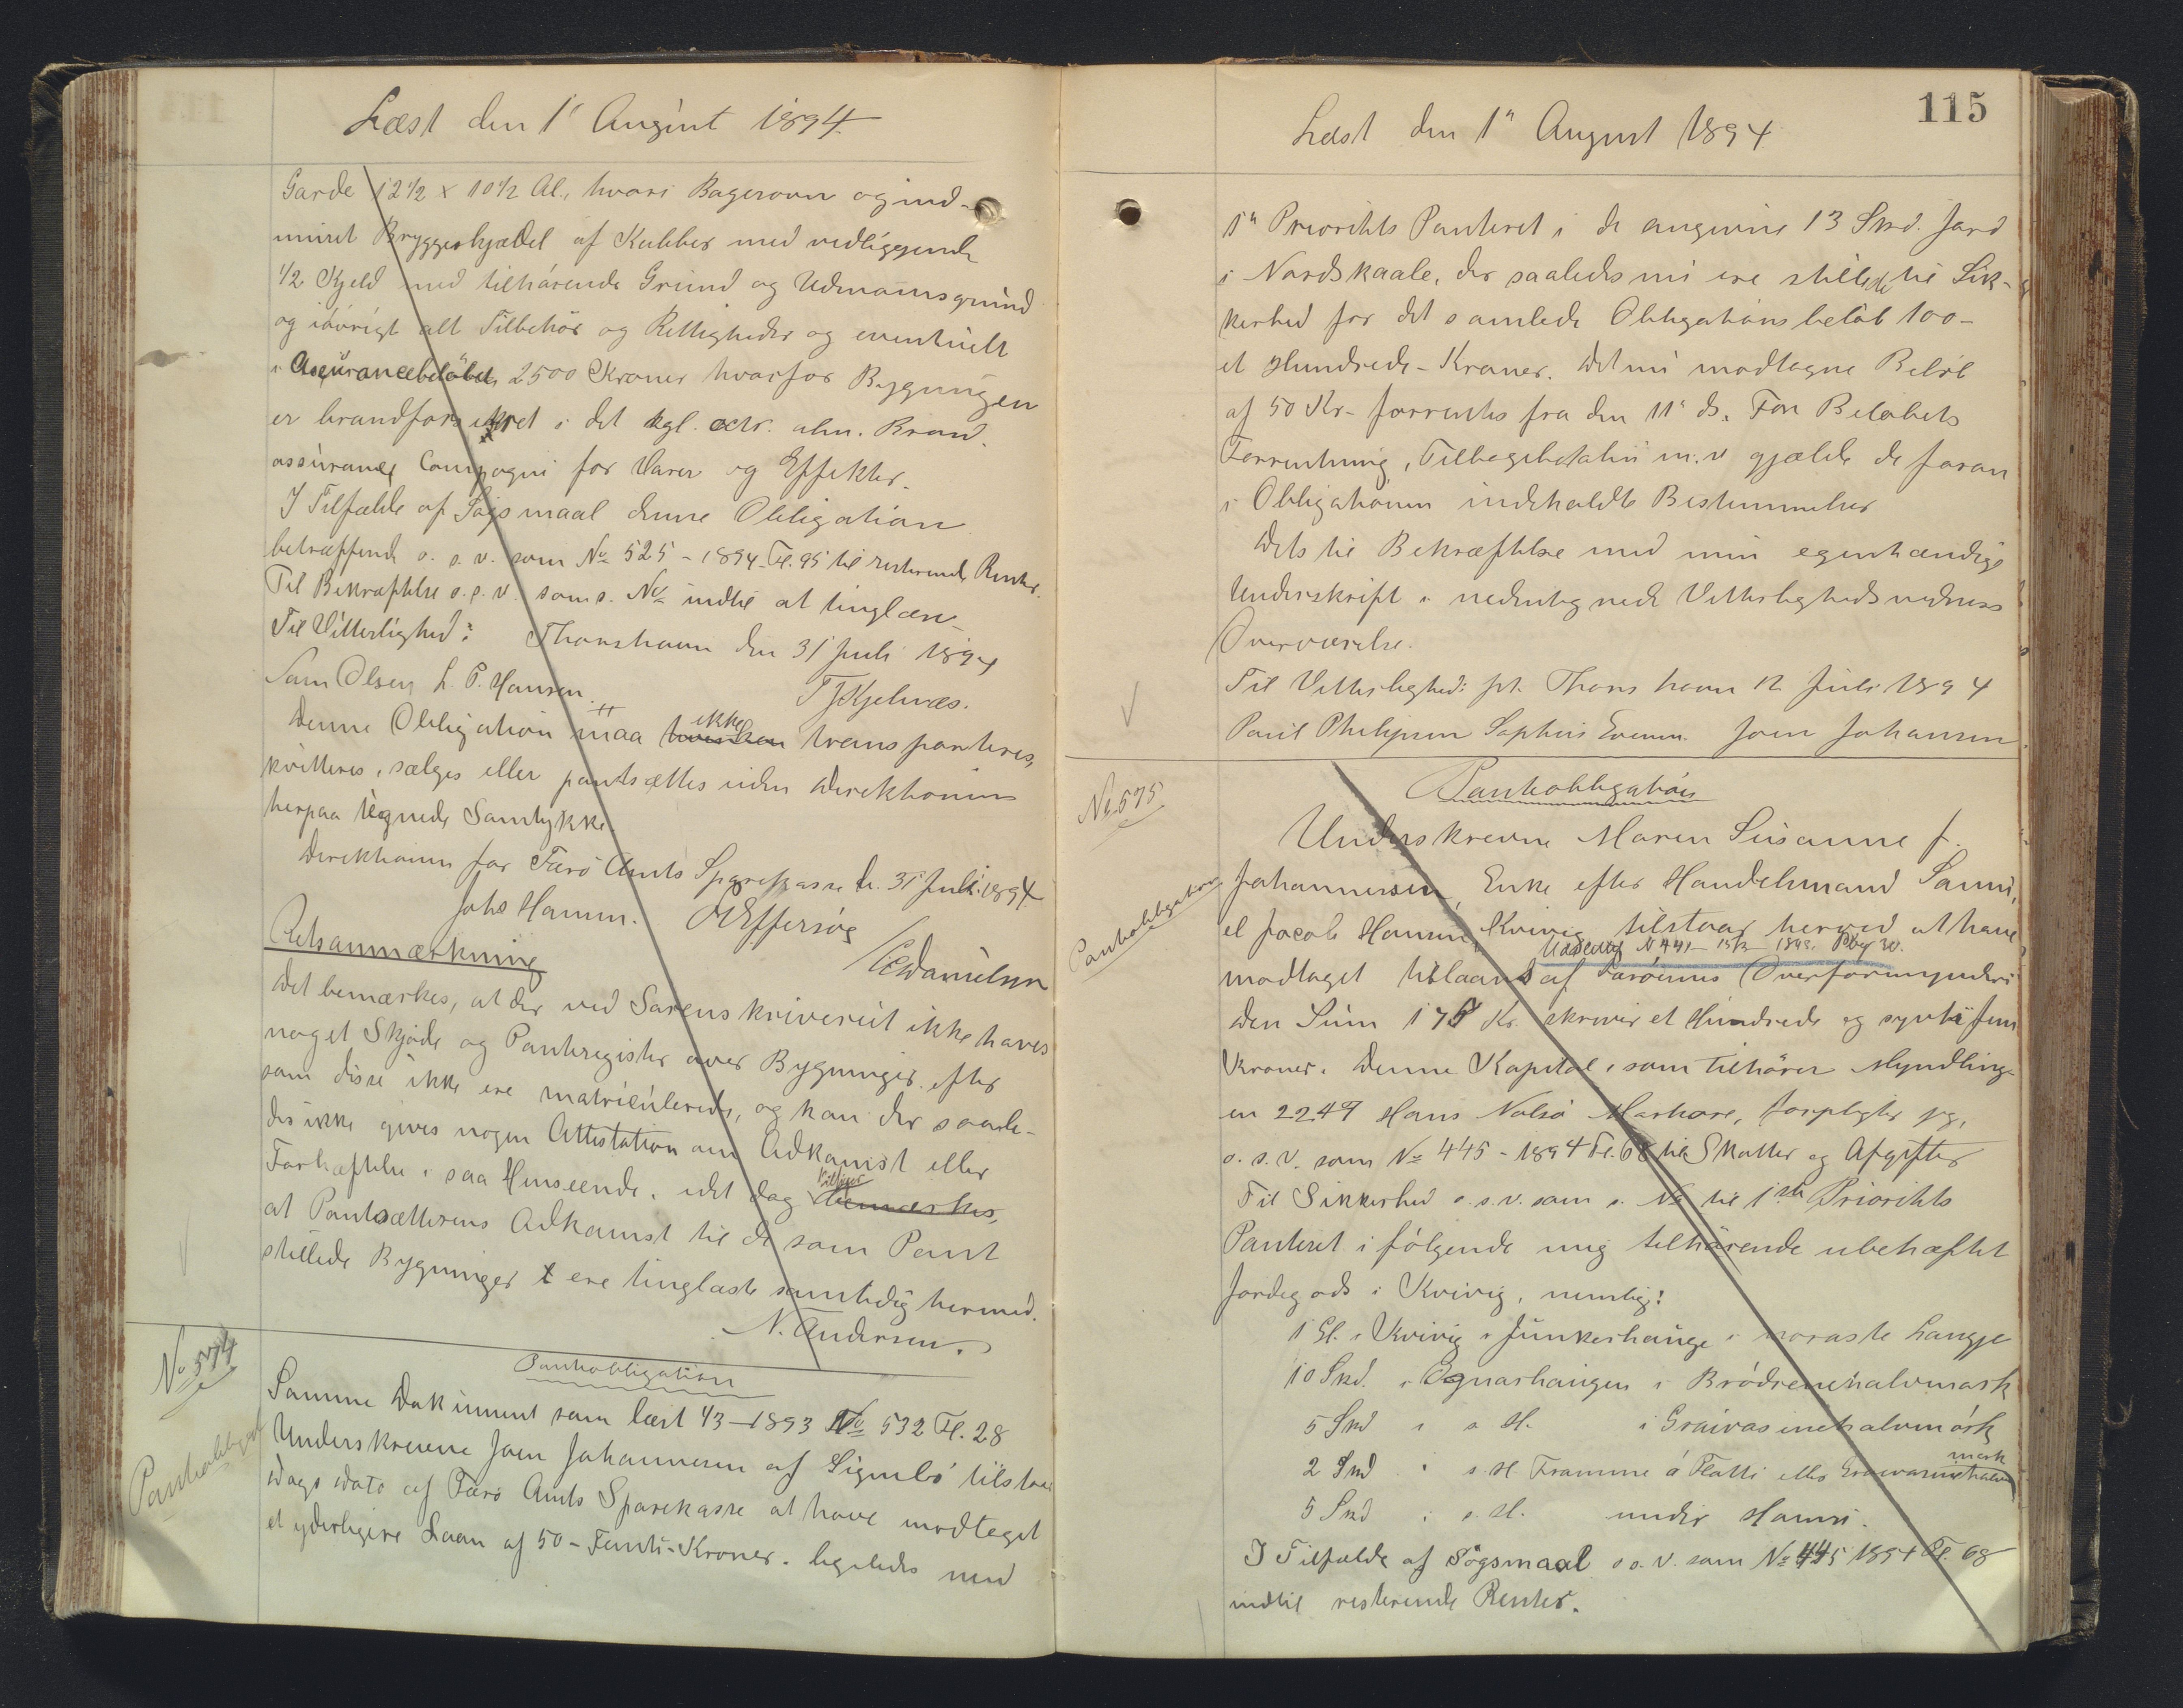 Læst den 1' August 1894.
Gaarde 12 1/2 x 10 1/2 Al., hvori Bagerovn og ind-
muret Bryggerkjedel af Kobber med vedliggende
1/2 Kjeld med tilhørende Grund og Udmarksgrund
og iøvrigt alt Tilbehør og Rettigheder og eventuelt
i Assurancebeløbet 2500 Kroner hvorfor Bygningen
er brandforsikret i det kgl. octr. alm. Brand.
assurance Compagni for Varer og Effekter.
I Tilfælde af Søgsmaal denne Obligation
betræffende o. s. v. som No 525 - 1894 Fl. 95 til resterende Renter.
Til Bekræftelse o. s. v. som s. No indtil at tinglæse
Thorshavn den 31 Juli 1894
Til Vitterlighed:
Sam Olsen L. P. Hansen.
T J Kjelnæs.
Denne Obligation maa ikke transporteres,
kvitteres, sælges eller pantsættes uden Direktionens
herpaa tegnede Samtykke.
Direktionen for Færø Amts Sparekasse d. 31 Juli 1894
Johs Hamm. OEffersøe
CDanielsen
Retsanmærkning
Det bemærkes, at der ved Sorenskriveriet ikke haves
noget Skjøde og Panteregister over Bygninger, efter
som disse ikke ere matriculerede, og kan der saale-
des ikke gives nogen Attestation om Adkomst eller
Forhæftelse i saa Henseende, idet dog tilføjes
at Pantsætterens Adkomst til de som Pant
stillede Bygninger ere tinglæste samtidig hermed.
N. Andersen.
No 574
Pantobligation
Pantobligation
Samme Dokument som læst 1/3 - 1893 No 532 Fl. 28
Underskrevne Joen Johannesen af Signabø tilstaar
Dags Dato af Færø Amts Sparekasse at have modtaget
et yderligere Laan af 50 - Femti - Kroner. ligeledes med
115
Læst den 1" August 1894
1" Prioritets Panteret i de angivne 13 Skd. Jord
i Nordskaale, der saaledes nu ere stillede til Sik-
kerhed for det samlede Obligationsbeløb 100 -
et Hundrede - Kroner. Det nu modtagne Beløb
af 50 Kr - forrentes fra den 11' ds. For Beløbets
Forrentning, Tilbagebetaling m. v gjælde de foran
i Obligationen indeholdte Bestemmelser
Dets til Bekræftelse med min egenhændige
Underskrift i nedentegnede Vitterlighedsvidners
Overværelse.
Til Vitterlighed: pt. Thorshavn 12 Juli 1894
Poul Philipsen Sophus Evensen. Joen Johansen
No 575
Pantobligation
Pantobligation
Underskrevne Maren Susanne f.
Johannesen, Enke efter Handelsmand Samu-
el Jacob Hansen, Kvivig tilstaar herved at have
Udslettet N 441 - 15/3 - 1898.
modtaget tillaans af Færøernes Overformynderi
den Sum 175 Kr skriver et Hundrede og sytti Fem
Kroner. Denne Kapital, som tilhører Myndling-
en 2247 Hans Nolsø Morkøre, forpligter jeg,
o. s. v. som No 445 - 1894 Fl. 68 til Skatter og Afgifter
Til Sikkerhed o. s. v. som s. No til 1ste Prioritets
Panteret i følgende mig tilhørende ubehæftet
Jordegods i Kvivig, nemlig:
1 Gl. i Kvivig i Junkerhauge i noraste Langje
10 Skd. i Ognarhaugen i Brødrenehalvmark
5 Skd i s. H. i Graivasinehalvmørk
2 Skd i s. H. Framme á Flatti eller Graivarinehalvmark
5 Skd i s. H. under Hamri.
I Tilfælde af Søgsmaal o s. v. som No 445 1894 Fl. 68
indtil resterende Renter.